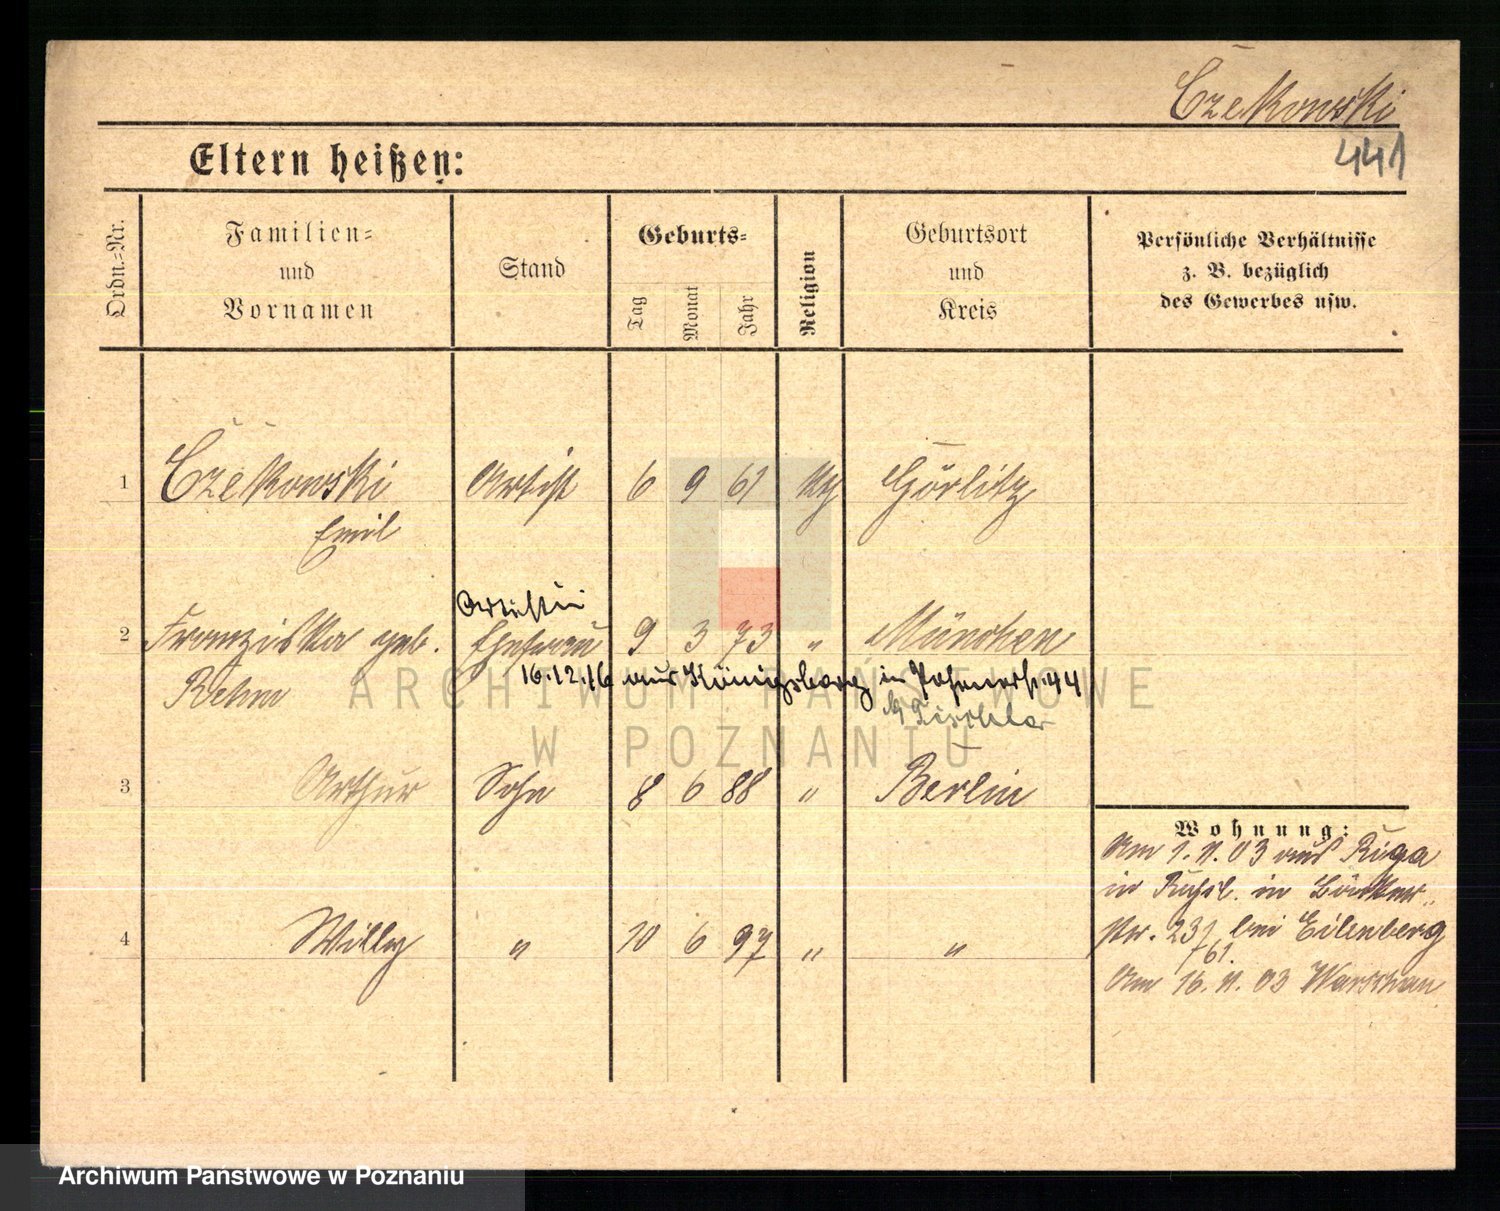 Czekowski
441
Eltern heißen:
Ordn.-Nr.
Familien-
und
Vornamen
Stand
Geburts-
Tag
Monat
Jahr
Religion
Geburtsort
und
Kreis
Persönliche Verhältnisse
z. B. bezüglich
des Gewerbes usw.
1 Czekowski Artist 6 9 61 Görlitz
Emil
Artistin
2 Franziska geb. Ehefrau 9 3 73 " München
Rehm
16.12.16 aus Königsberg in Posenerstr. 44
b/ Tischler
3 Arthur Sohn 8 6 88 " Berlin
Wohnung:
Am 1.11.03 aus Riga
in Rußl. in Bäcker-
4 Willy " 10 6 97 " "
str. 23 bei Eilenberg
761.
Am 16.11.03 Warschau
ARCHIWUM PAŃSTWOWE
W POZNANIU
Archiwum Państwowe w Poznaniu